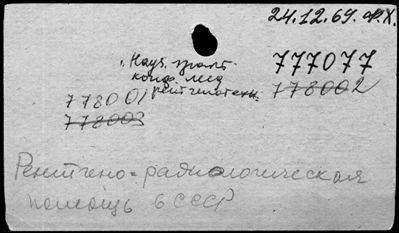 24.12.69. ф.Х.
Науч. практ. 777077
конф. мед
778001 рентгенотехн. 778002
778003
Рентгено-радиологическая
помощь в СССР